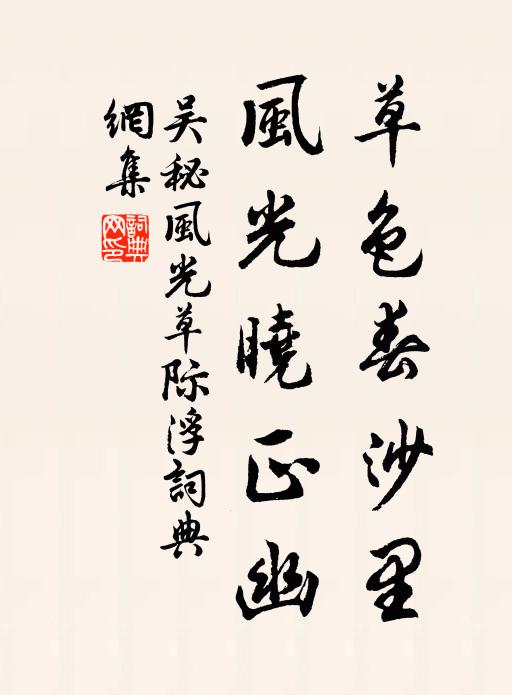 草色春沙里
風光曉正幽
吴秘風光草際浮詞典
網集
詞典
網印